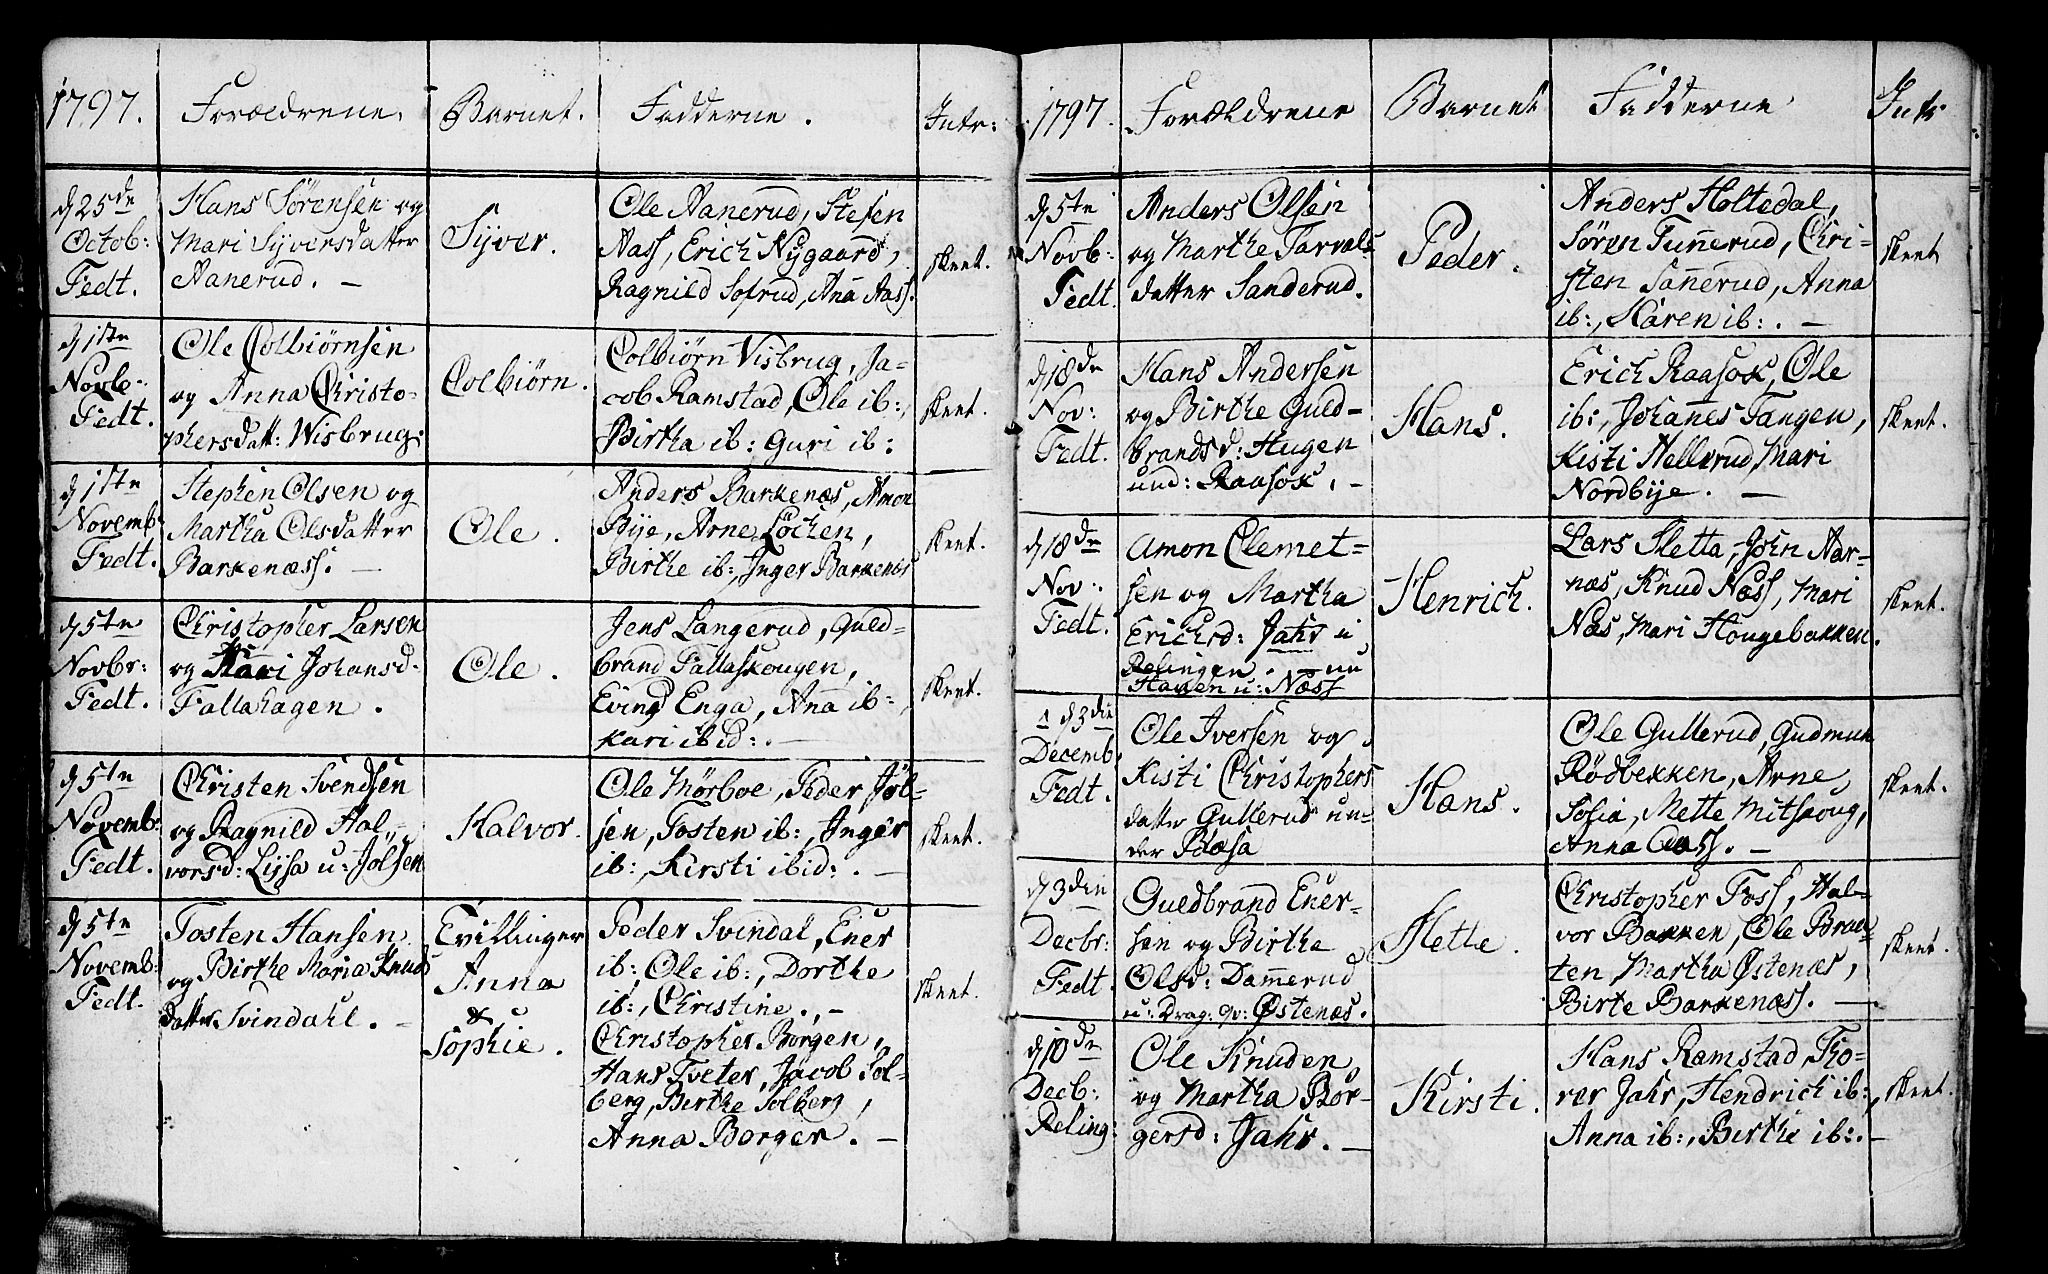 1797. Forældrene. Barnet. Fadderne. Intr:
d 25de
Octob:
Fedt.
Hans Sörensen og
Mari Syversdatter
Aanerud. —
Syver.
Ole Aanerud, Stefen
Aass, Erich Nygaard,
Ragnild Sofrud, Ana Aass.
skeet.
d 1ste
Novb:
Fedt.
Ole Colbiörnsen
og Anna Christo-
phersdatt: Wisbrug.
Colbiörn.
Colbiörn Visbrug, Ja-
cob Ramstad, Ole ib:,
Birtha ib: Guri ib:
skeet.
d 1ste
Novemb:
Fedt.
Stephen Olsen og
Martha Olsdatter
Barkenæss. —
Ole.
Anders Barkenæs, Amon
Bye, Arne Löchen,
Birthe ib:, Inger Barkenæs
skeet.
d 5te
Novbr:
Fedt.
Christopher Larsen
og Kari Johansd.
Fallahagen.
Ole.
Jens Langerud, Guld-
brand Fallaskougen,
Evind Enga, Ana ib:,
Kari ibid:. —
skeet.
d 5te
Novemb:
Fedt.
Christen Svendsen
og Ragnild Hal-
vorsd: Lyssa u: Jölsen
Halvor.
Ole Mörboe, Peder Jöl-
sen, Tosten ib:, Inger
ib:, Kirsti ibid:. —
skeet.
d 5te
Novemb:
Fedt.
Tosten Hansen
og Birthe Maria Knuds
datter Svindahl. —
Tvillinger
Anna
&
Sophie.
Peder Svindal, Ener
ib:, Ole ib:, Dorthe
ib:, Christine., —
Christopher Borgen,
Hans Tveter, Jacob Sol-
berg, Birthe Solberg,
Anna Borgen. —
skeet.
1797. Forældrene Barnet Fadderne Intr
d 5te
Novb:
Fedt.
Anders Olsen
og Marthe Tarvals
datter Sanderud.
Peder.
Anders Holtedal,
Sören Tunerud, Chri-
sten Sanerud, Anna
ib:, Karen ib:. —
skeet
d 18de
Nov:
Fedt.
Hans Andersen
og Birthe Guld-
brandsd: Haugen
und: Raasok. —
Hans.
Erich Raasok, Ole
ib:, Johanes Tangen,
Kisti Hellerud, Mari
Nordbye. —
skeet.
d 18de
Nov:
Fedt.
Amon Clemet-
sen og Martha
Erichsd: Jahr i
Rælingen. — nu
Hagen u: Næss
Henrich.
Lars Sletta, John Aar-
næs, Knud Næss, Mari
Næs, Mari Hougebakken.
skeet.
1 d 3die
Decemb.
Fedt.
Ole Iversen og
Kisti Christophers
datter Gullerud un-
der Raasa
Hans.
Ole Gullerud, Gudmun
Rödbekken, Arne
Sosia, Mette Mitskoug,
Anna Aass. —
skeet.
d 3die
Decbr:
Fedt.
Guldbrand Ener-
sen og Birthe
Olsd: Dammerud
u: Drag: qv: Östenæs.
Mette.
Christopher Foss, Hal-
vor Bakken, Ole Braa-
ten Martha Östenæs,
Birte Barkenæss. —
skeet.
d 10de
Decb:
Reling:
Ole Knuden,
og Martha Bör-
gersd: Jahr. —
Kirsti.
Hans Ramstad, Tho-
rer Jahr, Hendrich ib:,
Anna ib:, Birthe ib:. —
skeet.